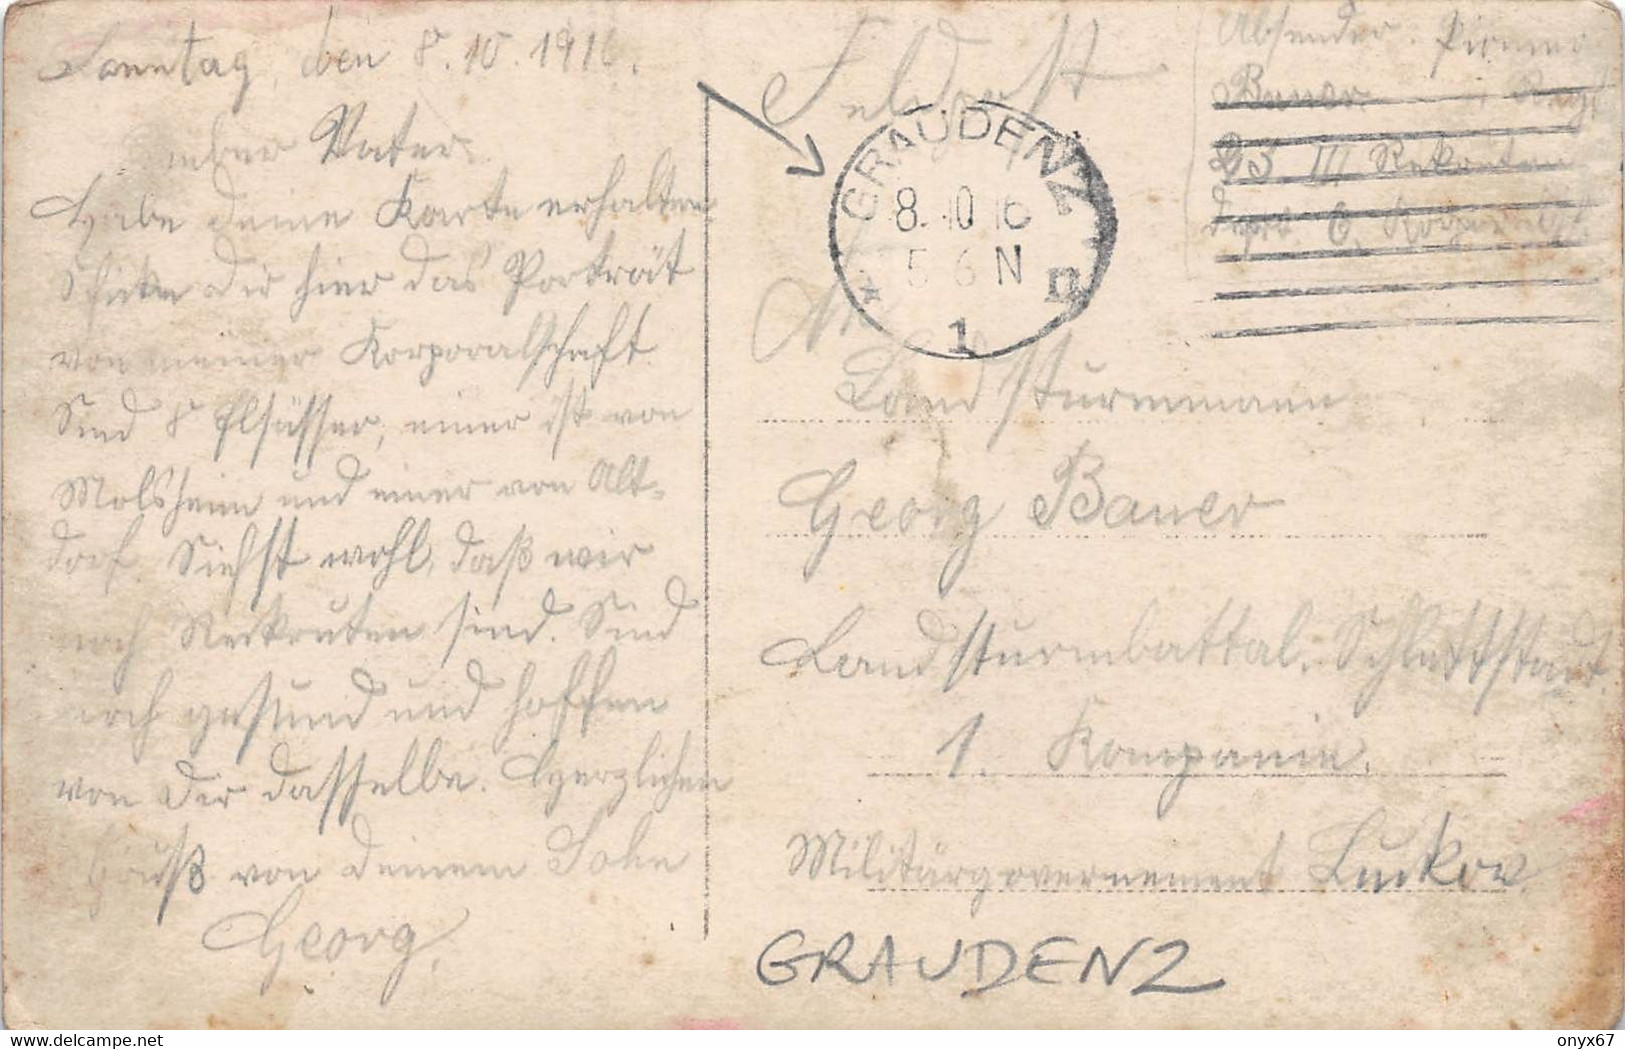 Sonntag, den 8.10.1916.
Lieber Vater.
Habe deine Karte erhalten
Schicke Dir hier das Porträt
von meiner Korporalschaft.
Sind 8 Elsässer, einer ist von
Molsheim und einer von Alt-
dorf. Siehst wohl, daß wir
noch Rekruten sind. Sind
noch gesund und hoffen
von Dir dasselbe. Herzlichen
Gruß von deinem Sohn
Georg.
Feldpost
Absender. Pionier
Bauer
III Rekruten
Depot
GRAUDENZ
8.10.16
5-6 N
* 1 n
An
Landsturmmann
Georg Bauer
Landsturmbattal. Schlettstadt.
1. Kompanie.
Militärgovernement Luckow.
GRAUDENZ
delcampe.net
onyx67